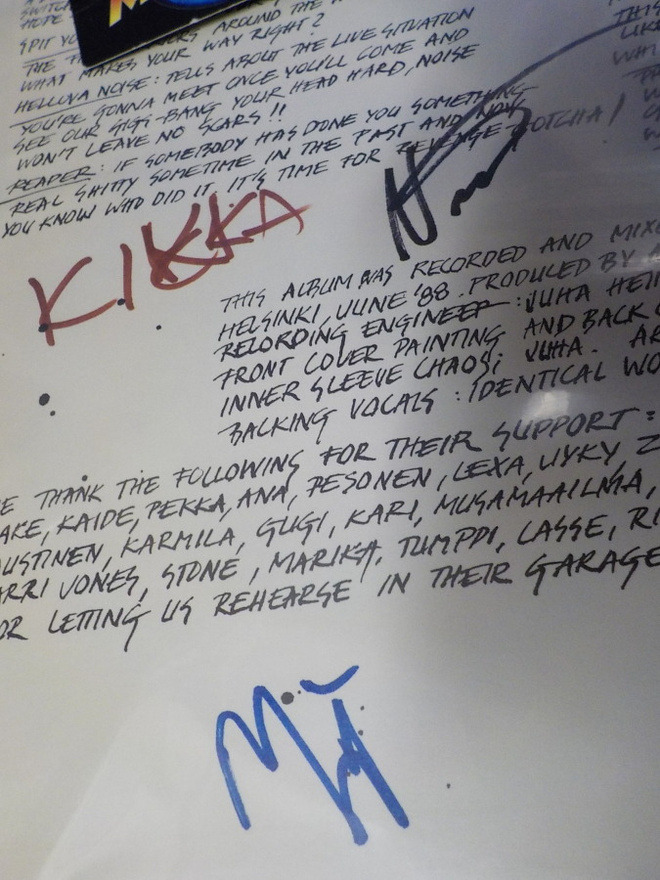 HOPE
SPIT YO
THE F AROUND THE
WHAT MAKES YOUR WAY RIGHT?
HELLOVA NOISE: TELLS ABOUT THE LIVE SITUATION
YOU'RE GONNA MEET ONCE YOU'LL COME AND
SEE OUR GIGS-BANG YOUR HEAD HARD, NOISE
WON'T LEAVE NO SCARS!!
REAPER: IF SOMEBODY HAS DONE YOU SOMETHING
REAL SHITTY SOMETIME IN THE PAST AND NOW
YOU KNOW WHO DID IT IT'S TIME FOR REVENGE-GOTCHA!
KIKKA
THIS ALBUM WAS RECORDED AND MIX
HELSINKI, JUNE '88. PRODUCED BY A
RECORDING ENGINEER: JUHA HEI
FRONT COVER PAINTING AND BACK C
INNER SLEEVE CHAOS: JUHA. AR
BACKING VOCALS: IDENTICAL WO
E THANK THE FOLLOWING FOR THEIR SUPPORT:
AKE, KAIDE, PEKKA, ANA, PESONEN, LEXA, UYKY Z
USTINEN, KARMILA, GUGI, KARI, MUSAMAAILMA,
ARRI JONES, STONE, MARIKA, TUMPPI, LASSE, RI
OR LETTING US REHEARSE IN THEIR GARAGE